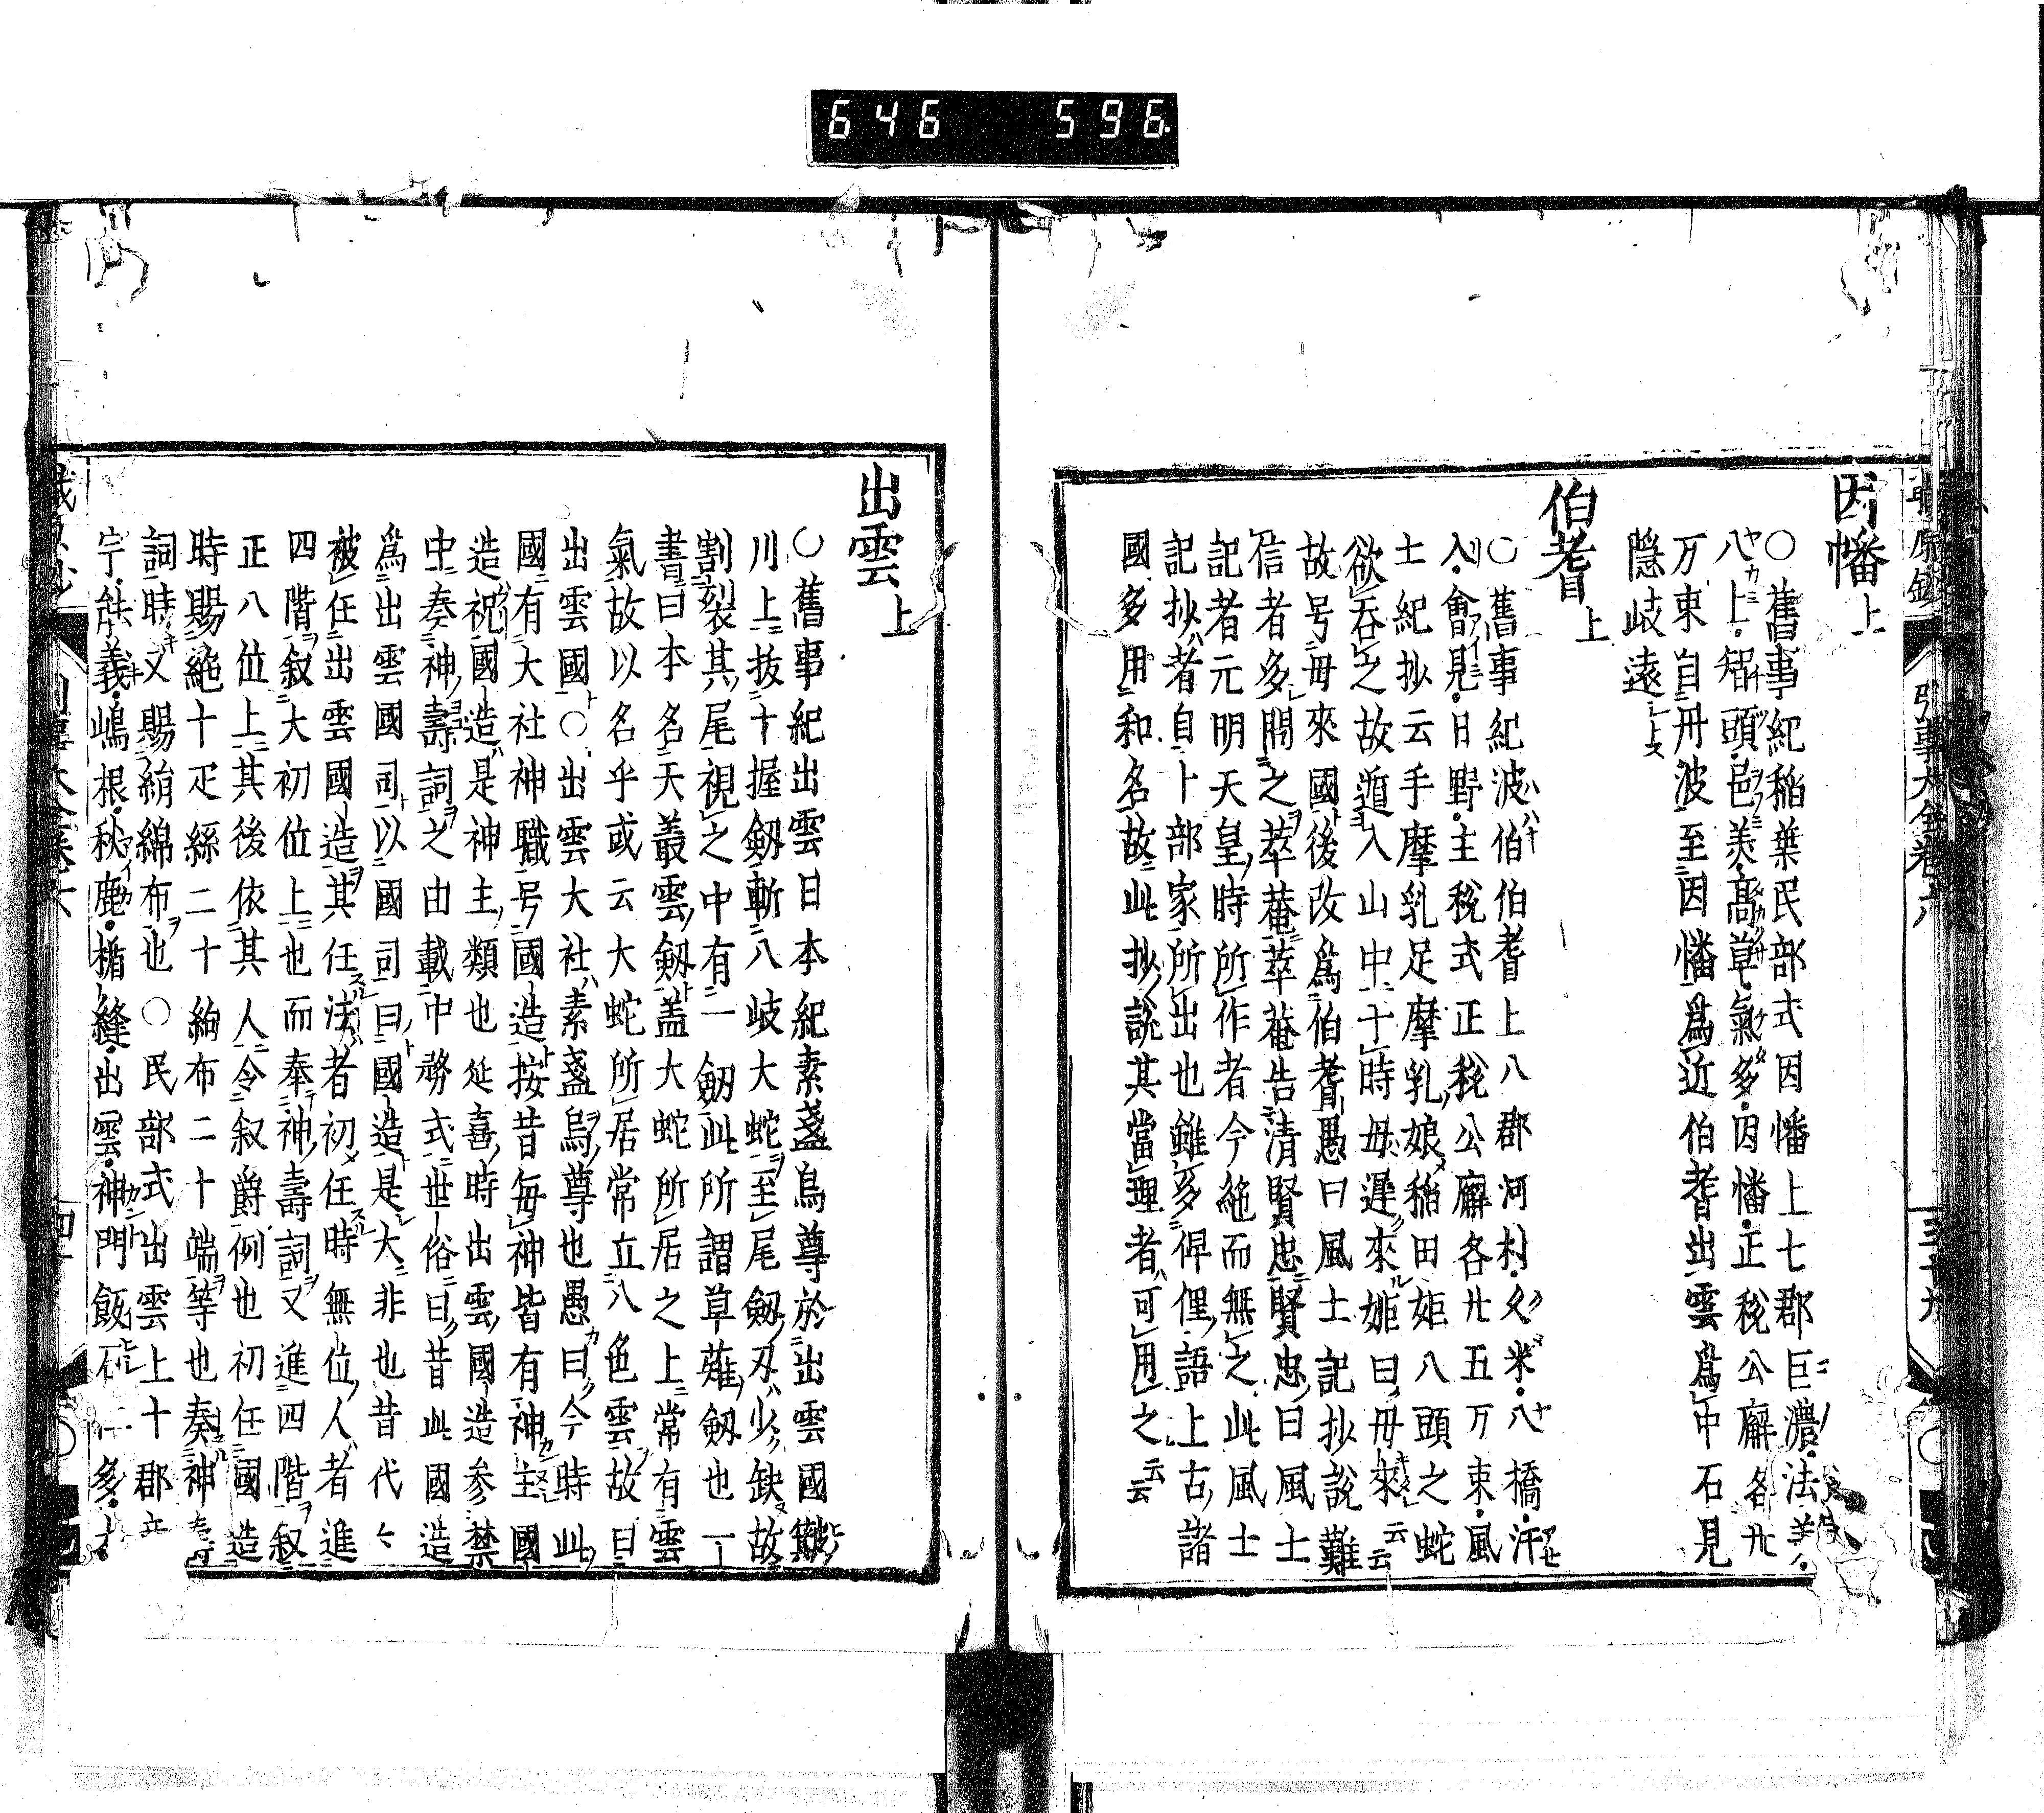 646 596.
因幡上
〇舊事紀稲葉民部式因幡上七郡巨濃・法美・
八上・智頭・邑美・髙草・氣多・因幡・正税公廨各卅
万束自丹波至因幡爲近伯耆出雲爲中石見
隠岐遠
伯耆上
〇舊事紀波伯伯耆上八郡河村・久米・八橋・汗
入・會見・日野・主税式正税公廨各卅五万束・風
土紀抄云手摩乳足摩乳娘稲田姫八頭之蛇
欲呑之故遁入山中于時母遅來姫曰毋來云云
故号毋來國後改爲伯耆愚曰風土記抄説難
信者多問之萃菴萃菴告清賢忠賢忠曰風土
記者元明天皇時所作者今絶而無之此風土
記抄者自卜部家所出也雖多俾俚語上古諸
國多用和名故此抄説其當理者可用之云云
出雲上
〇舊事紀出雲日本紀素盞烏尊於出雲國簸
川上拔十握劔斬八岐大蛇至尾劔刃少缺故
割裂其尾視之中有一劔此所謂草薙劔也一
書曰本名天叢雲劔盖大蛇所居之上常有雲
氣故以名乎或云大蛇所居常立八色雲故曰
出雲國〇出雲大社素盞烏尊也愚曰今時此
國有大社神職号國造按昔毎神皆有神主國
造祝國造是神主類也延喜時出雲國造参禁
中奏神壽詞之由載中務式世俗曰昔此國造
爲出雲國司以國司曰國造是大非也昔代々
被任出雲國造其任法者初任時無位人者進
四階叙大初位上也而奉神壽詞又進四階叙
正八位上其後依其人令叙爵例也初任國造
時賜絁十疋絲二十絇布二十端等也奏神壽
詞時又賜絹綿布也〇民部式出雲上十郡
宇・能義・嶋根・秋鹿・楯縫・出雲・神門飯石仁多・